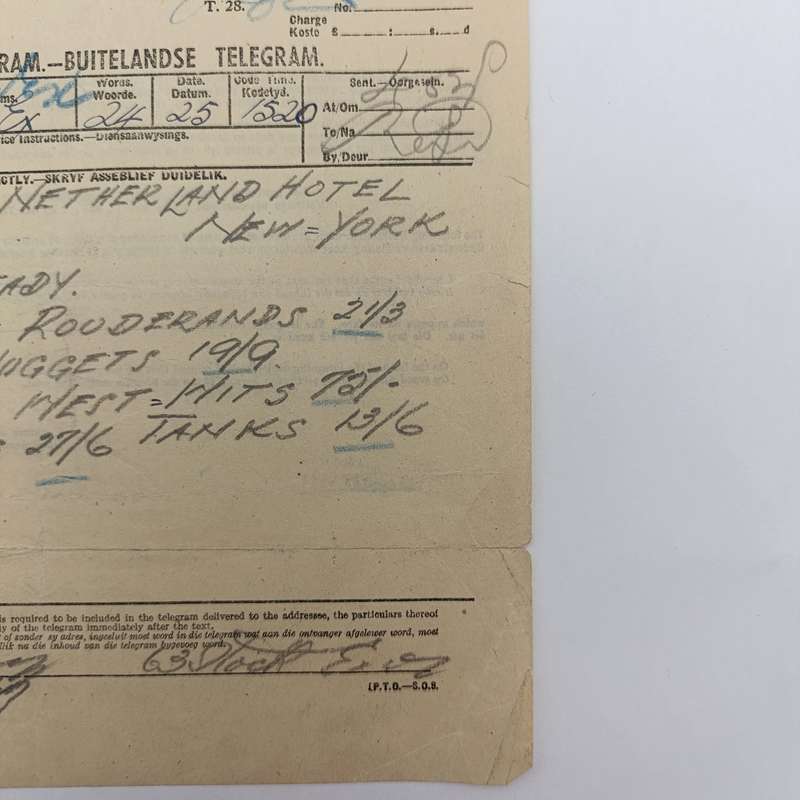 T. 28.
No.
Charge
Koste £ : s. d
RAM.—BUITELANDSE TELEGRAM.
Words. Date. Code Time. Sent.—Oorgesein.
Woorde. Datum. Kodetyd.
24 25 1520 At/Om
To/Na
ice Instructions.—Diensaanwysings.
By/Deur
CTLY.—SKRYF ASSEBLIEF DUIDELIK.
NETHERLAND HOTEL
NEW=YORK
EADY.
ROODERANDS 21/3
NUGGETS 19/9.
WEST=WITS 75/-
27/6 TANKS 13/6
is required to be included in the telegram delivered to the addressee, the particulars thereof
y of the telegram immediately after the text.
t of sonder sy adres, ingesluit moet word in die telegram wat aan die ontvanger afgelewer word, moet
llik na die inhoud van die telegram bygevoeg word.
63 Stock
(P.T.O.—S.O.B.